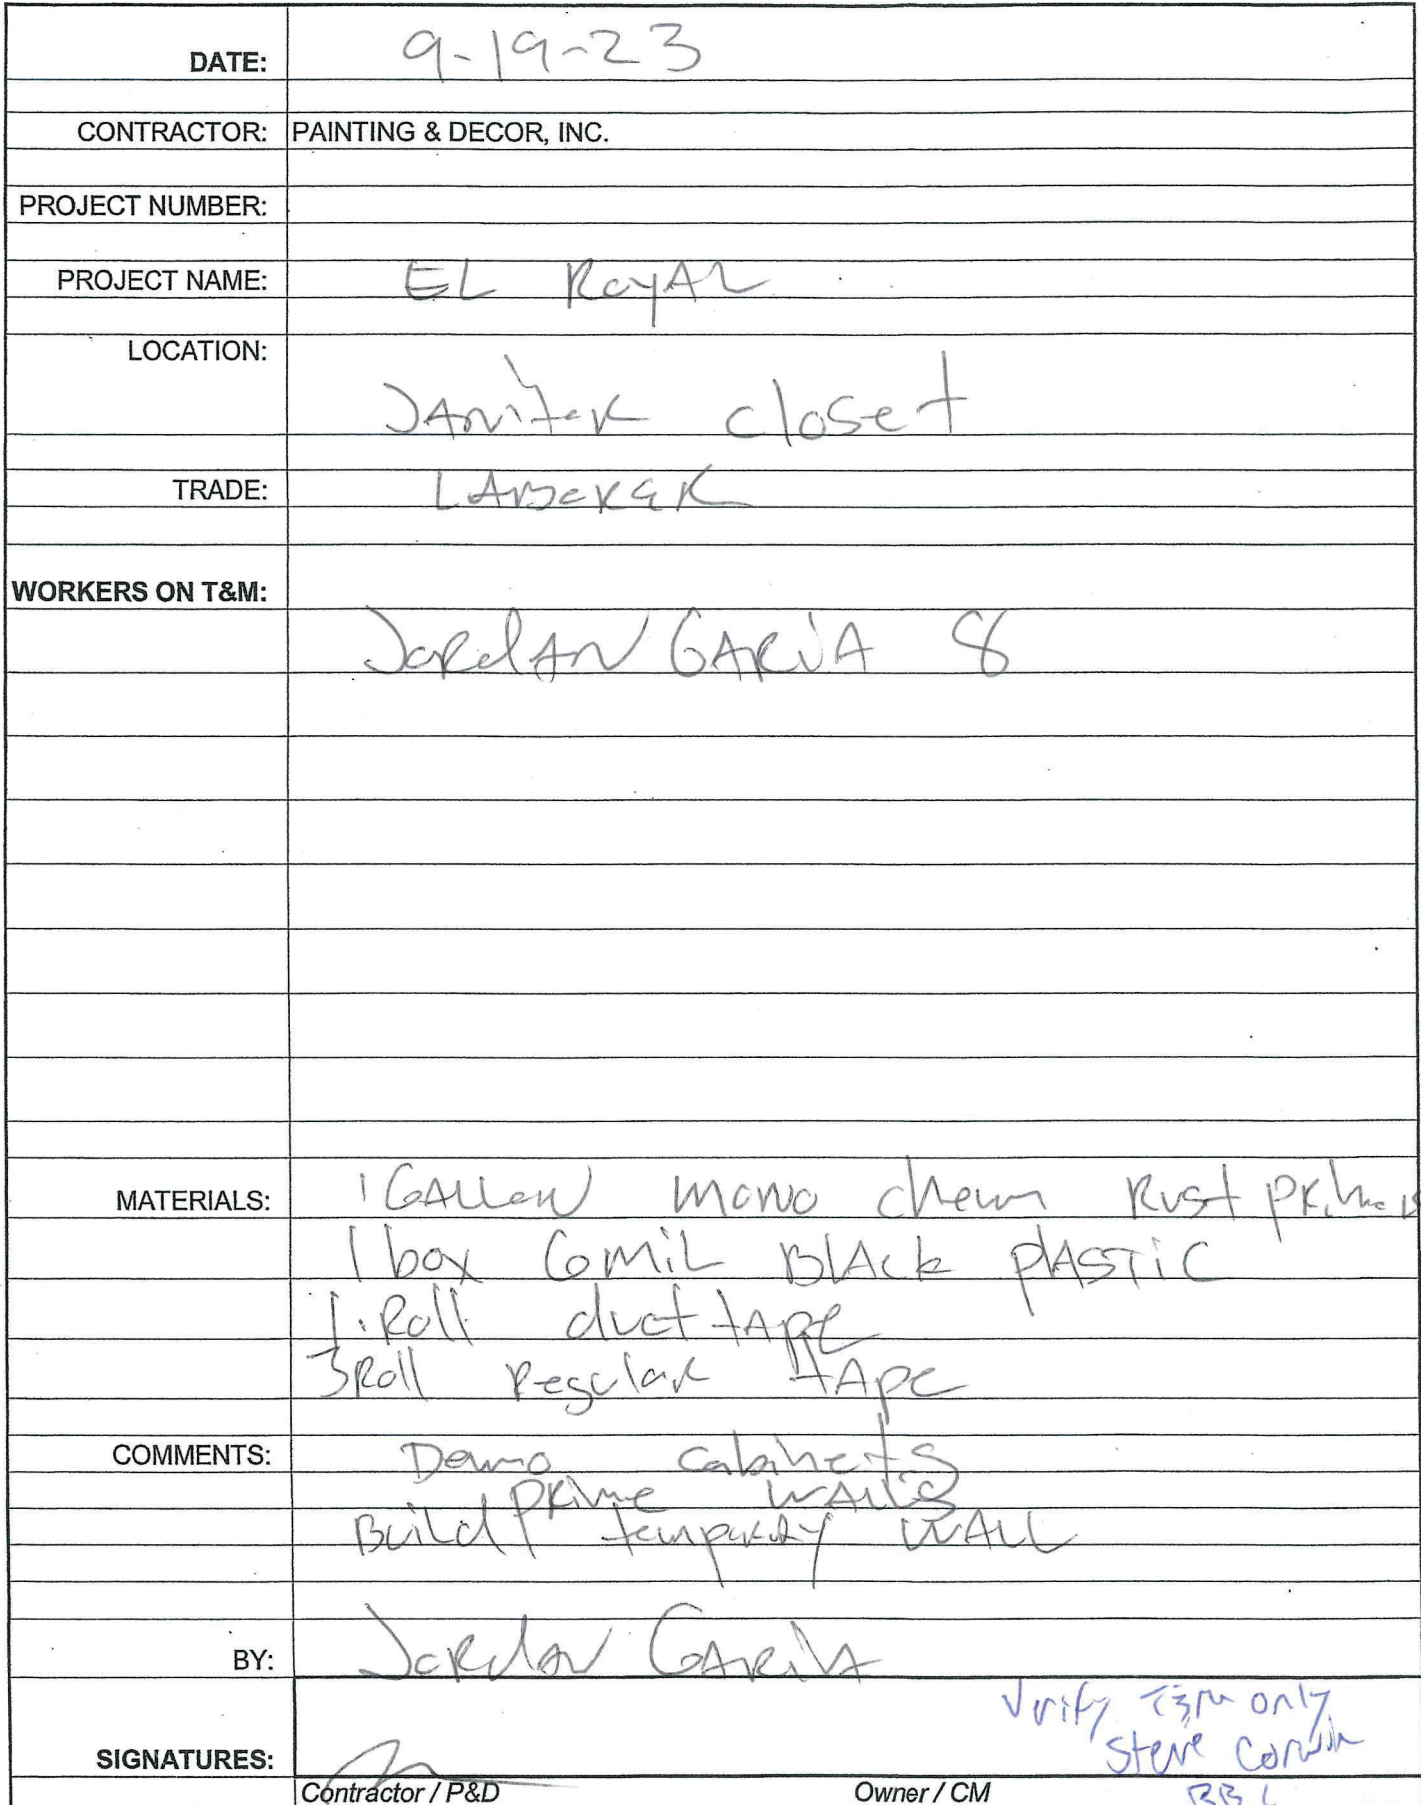 DATE: 9-19-23
CONTRACTOR: PAINTING & DECOR, INC.
PROJECT NUMBER:
PROJECT NAME: EL RoyAL
LOCATION:
JANitor closet
TRADE: LABORER
WORKERS ON T&M:
JordAN GARCiA 8
MATERIALS: 1 GALLON mono chem Rust primer
1 box 6 MiL BLAck PlASTiC
1 Roll duct tApe
3 Roll Regular tApe
COMMENTS: Demo Cabinets
Prime WALLS
BuiLd temporary WALL
BY: JordAN GARCiA
Verify T&M only
SIGNATURES: Steve
Contractor / P&D Owner / CM BBL